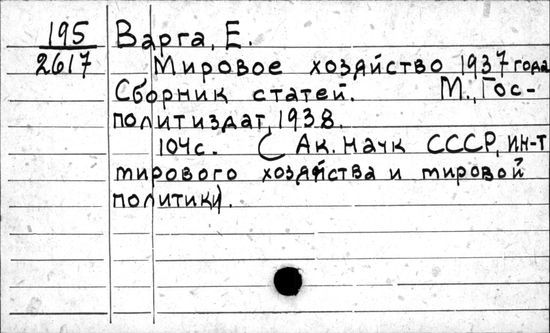 195
2617
Варга, Е.
Мировое хозяйство 1937 года
Сборник статей. М., Гос-
политиздат, 1938.
104с. (Ак. наук СССР, ин-т
мирового хозяйства и мировой
политики).